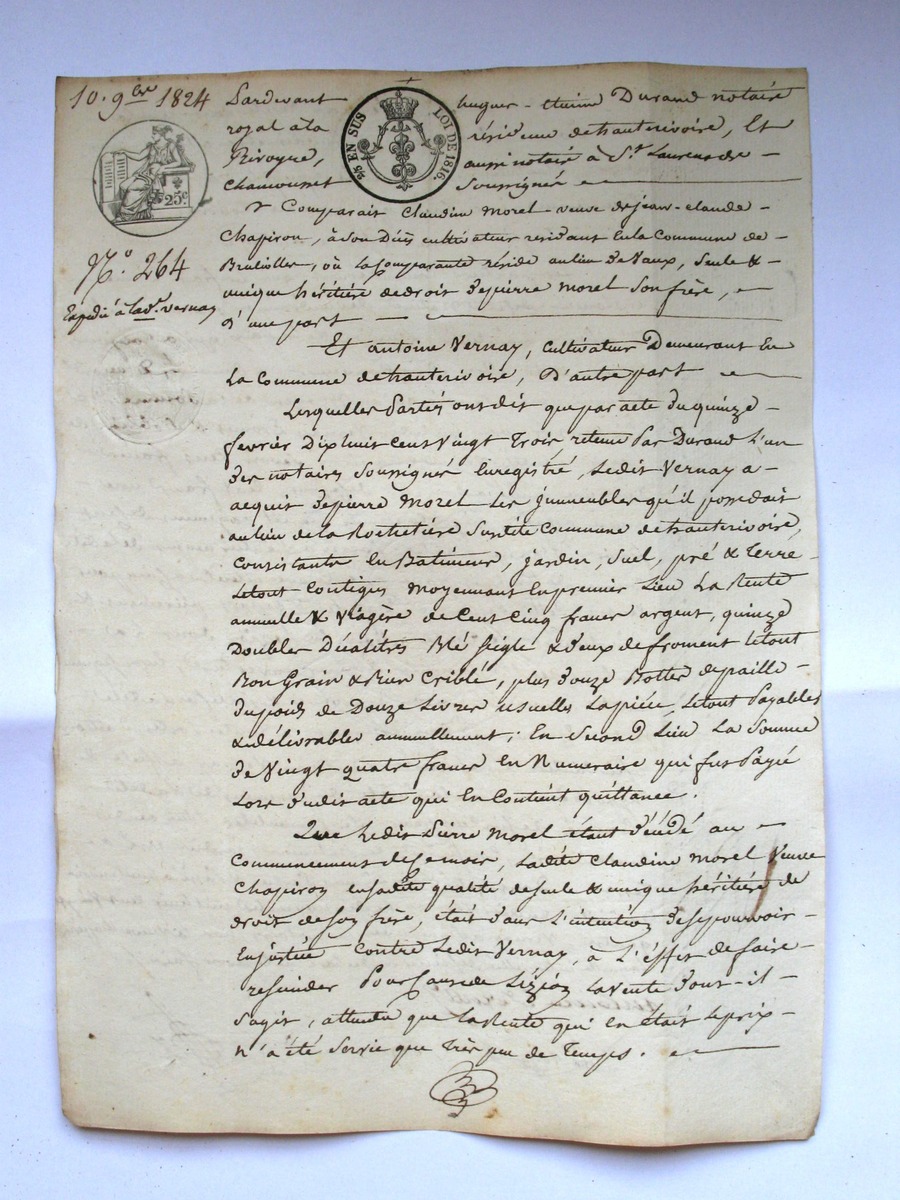 10. 9bre 1824
25c
2/5 EN SUS LOI DE 1816.
No. 264
Expédié à la d. vernay
Pardevant hugues - étienne Durand notaire
royal à la résidence de hauterivoire, Et
Rivoyre, aussi notaire à St. Laurens de -
Chamousset Soussignés
Comparait Claudine morel veuve de jean-claude -
Chapiron, à Son Décès cultivateur residant En la Commune de -
Brulioles, où La Comparante réside au lieu de Vaux, Seule &
unique héritière de droit de pierre morel Son frère,
d'une part
Et antoine Vernay, Cultivateur Demeurant En
La Commune de hauterivoire, D'autre part
Lesquelles Parties ont dit que par acte du quinze -
février Dix huit Cent Vingt Trois retenu Par Durand L'un
des notaires Soussignés Enregistré, Ledit Vernay a -
acquit de pierre morel Les jmmeubles qu'il possedait
au lieu de la Rochetière Susdite Commune de hauterivoire,
Consistants En Batiments, jardin, Suel, pré & Terre -
Le tout Contigus moyennant En premier Lieu La Rente
annuelle & Viagère de Cent Cinq francs argent, quinze
Doubles Décalitres Blé Seigle & deux de froment le tout
Bon Grain & Bien Criblé, plus douze Bottes de paille -
du poids de Douze Livres usuelles La pièce, Le tout Payables
& délivrables annuellement; En Second Lieu La Somme
de Vingt quatre francs En Numeraire qui fut Payée
Lors dudit acte qui En Contient quittance.
Que Ledit Pierre morel étant décédé au
Commencement de Ce mois, Ladite Claudine morel Veuve
Chapiron en Sadite qualité de Seule & unique héritière de
droit de Son frère, était dans L'intention de Se pourvoir -
En justice Contre Ledit Vernay, à L'éffet de faire -
rescinder Pour Cause de Lézion La Vente dont - il -
S'agit, attendu que La Rente qui en était Le prix -
n'a été Servie que Très peu de Temps.